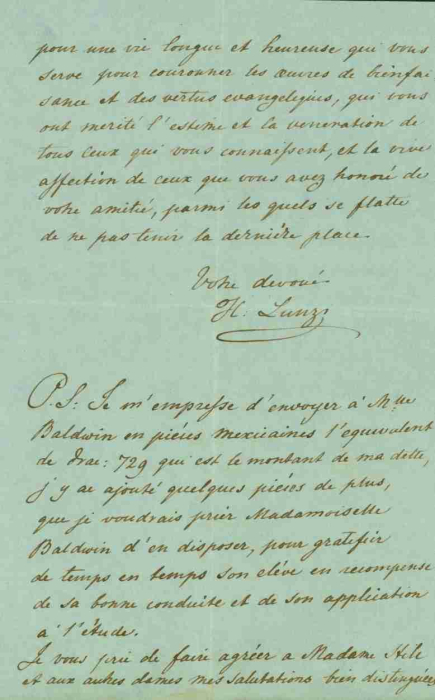 pour une vie longue et heureuse qui vous
serve pour couronner les œuvres de bienfai
sance et des vertus evangeliques, qui vous
ont merité l'estime et la veneration de
tous ceux qui vous connaissent, et la vive
affection de ceux que vous avez honoré de
votre amitié, parmi les quels se flatte
de ne pas tenir la dernière place.
Votre devoué
H. Lunzi
P.S: Je m'empresse d'envoyer à Mlle
Baldwin en piéces mexicaines l'equivalent
de Drac: 729 qui est le montant de ma dette,
j'y ai ajouté quelques piéces de plus,
que je voudrais prier Madamoiselle
Baldwin d'en disposer, pour gratifier
de temps en temps son eléve en recompense
de sa bonne conduite et de son application
à l'étude.
Je vous prie de faire agréer a Madame Hill
et aux autres dames mes salutations bien distinguées